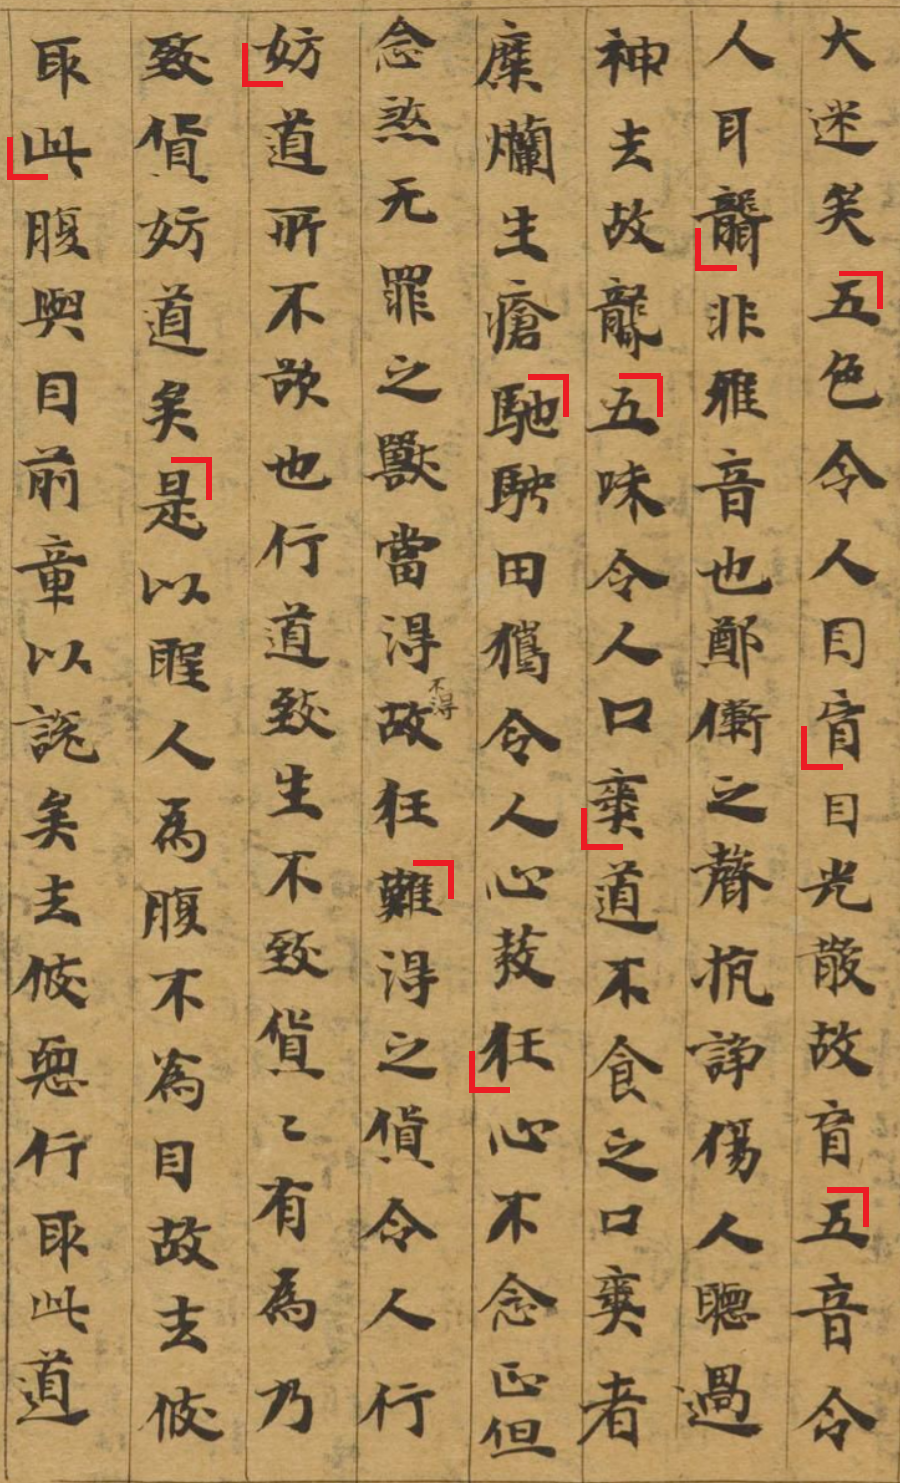 大迷矣五色令人目盲目光散故盲五音令
人耳聾非雅音也鄭衛之聲抗諍傷人聽過
神去故聾五味令人口爽道不食之口爽者
糜爛生瘡馳騁田獵令人心發狂心不念正但
念煞无罪之獸當得不得故狂難得之貨令人行
妨道所不欲也行道致生不致貨〻有為乃
致貨妨道矣是以聖人為腹不為目故去彼
取此腹與目前章以說矣去彼惡行取此道